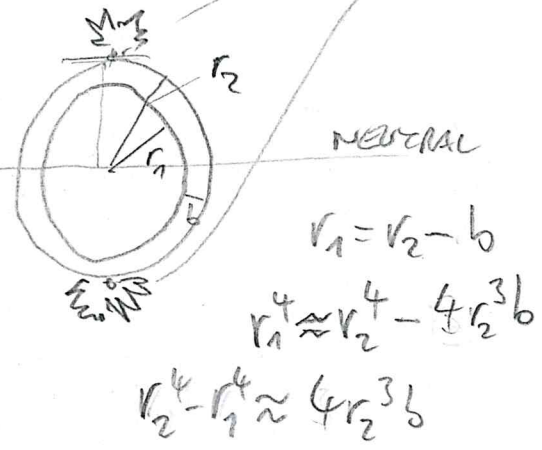 r₂
r₁
b
NEUTRAL
r₁ = r₂ − b
r₁⁴ ≈ r₂⁴ − 4r₂³b
r₂⁴ − r₁⁴ ≈ 4r₂³b